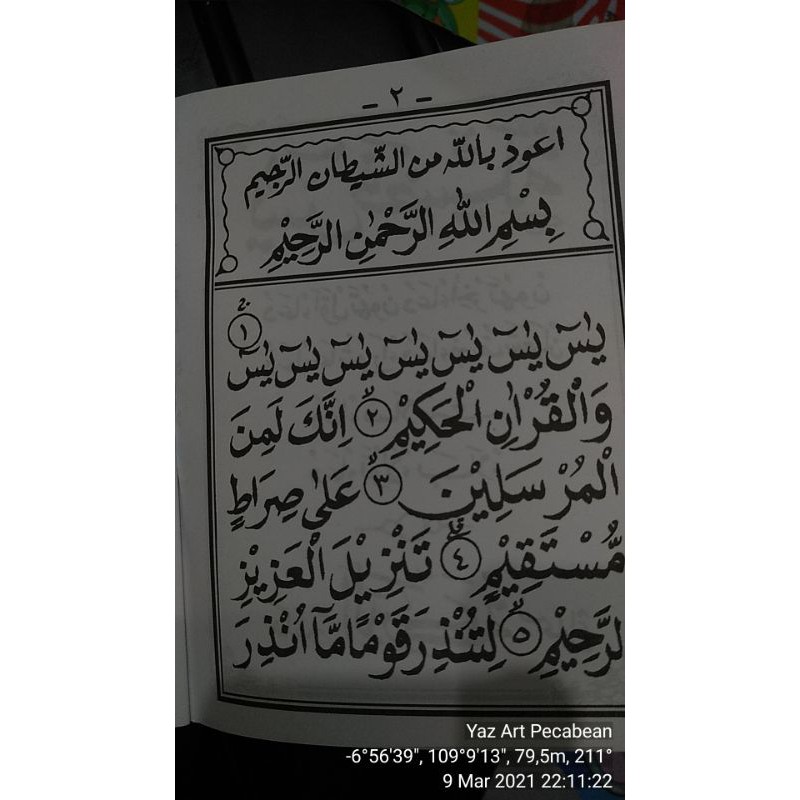 - ٢ -
اعوذ بالله من الشّيطان الرّجيم
بِسْمِ اللهِ الرَّحْمٰنِ الرَّحِيْمِ
يٰسٓ يٰسٓ يٰسٓ يٰسٓ يٰسٓ يٰسٓ يٰسٓ ۚ ١
وَالْقُرْاٰنِ الْحَكِيْمِ ۙ ٢ اِنَّكَ لَمِنَ
الْمُرْسَلِيْنَ ۙ ٣ عَلٰى صِرَاطٍ
مُّسْتَقِيْمٍ ۗ ٤ تَنْزِيْلَ الْعَزِيْزِ
لرَّحِيْمِ ۙ ٥ لِتُنْذِرَ قَوْمًا مَّآ اُنْذِرَ
Yaz Art Pecabean
-6°56'39", 109°9'13", 79,5m, 211°
9 Mar 2021 22:11:22